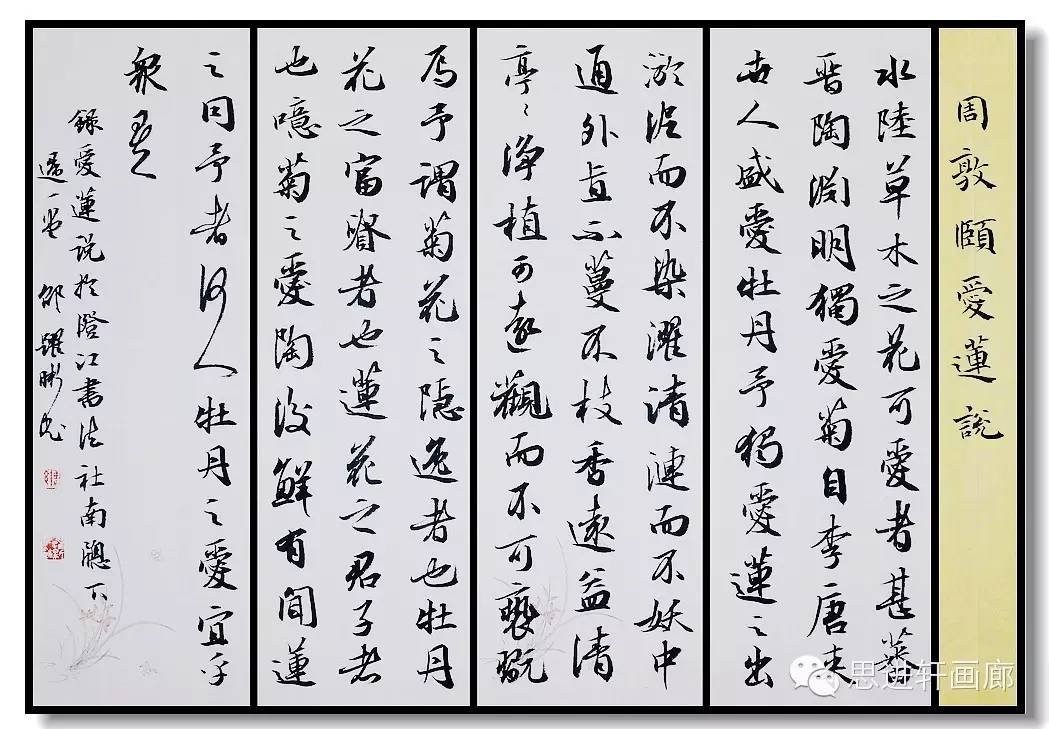 周敦頤愛蓮說
水陸草木之花可愛者甚蕃
晉陶渊明獨愛菊自李唐来
世人盛愛牡丹予獨愛蓮之出
淤泥而不染濯清漣而不妖中
通外直不蔓不枝香遠益清
亭〻淨植可遠觀而不可褻翫
焉予謂菊花之隐逸者也牡丹
花之富貴者也蓮花之君子者
也噫菊之愛陶後鮮有聞蓮
之同予者何人牡丹之愛宜乎
眾矣
錄愛蓮說於澄江書法社南牕下
一堂 邵躍彬書
思进轩画廊